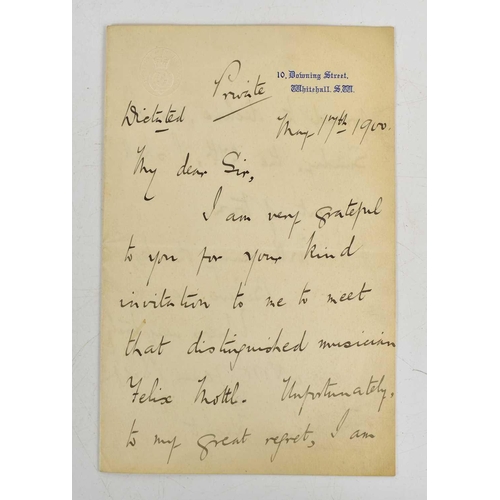 10, Downing Street,
Whitehall. S.W.
Private
Dictated
May 17th 1900.
My dear Sir,
I am very grateful
to you for your kind
invitation to me to meet
that distinguished musician
Felix Mottl. Unfortunately,
to my great regret, I am